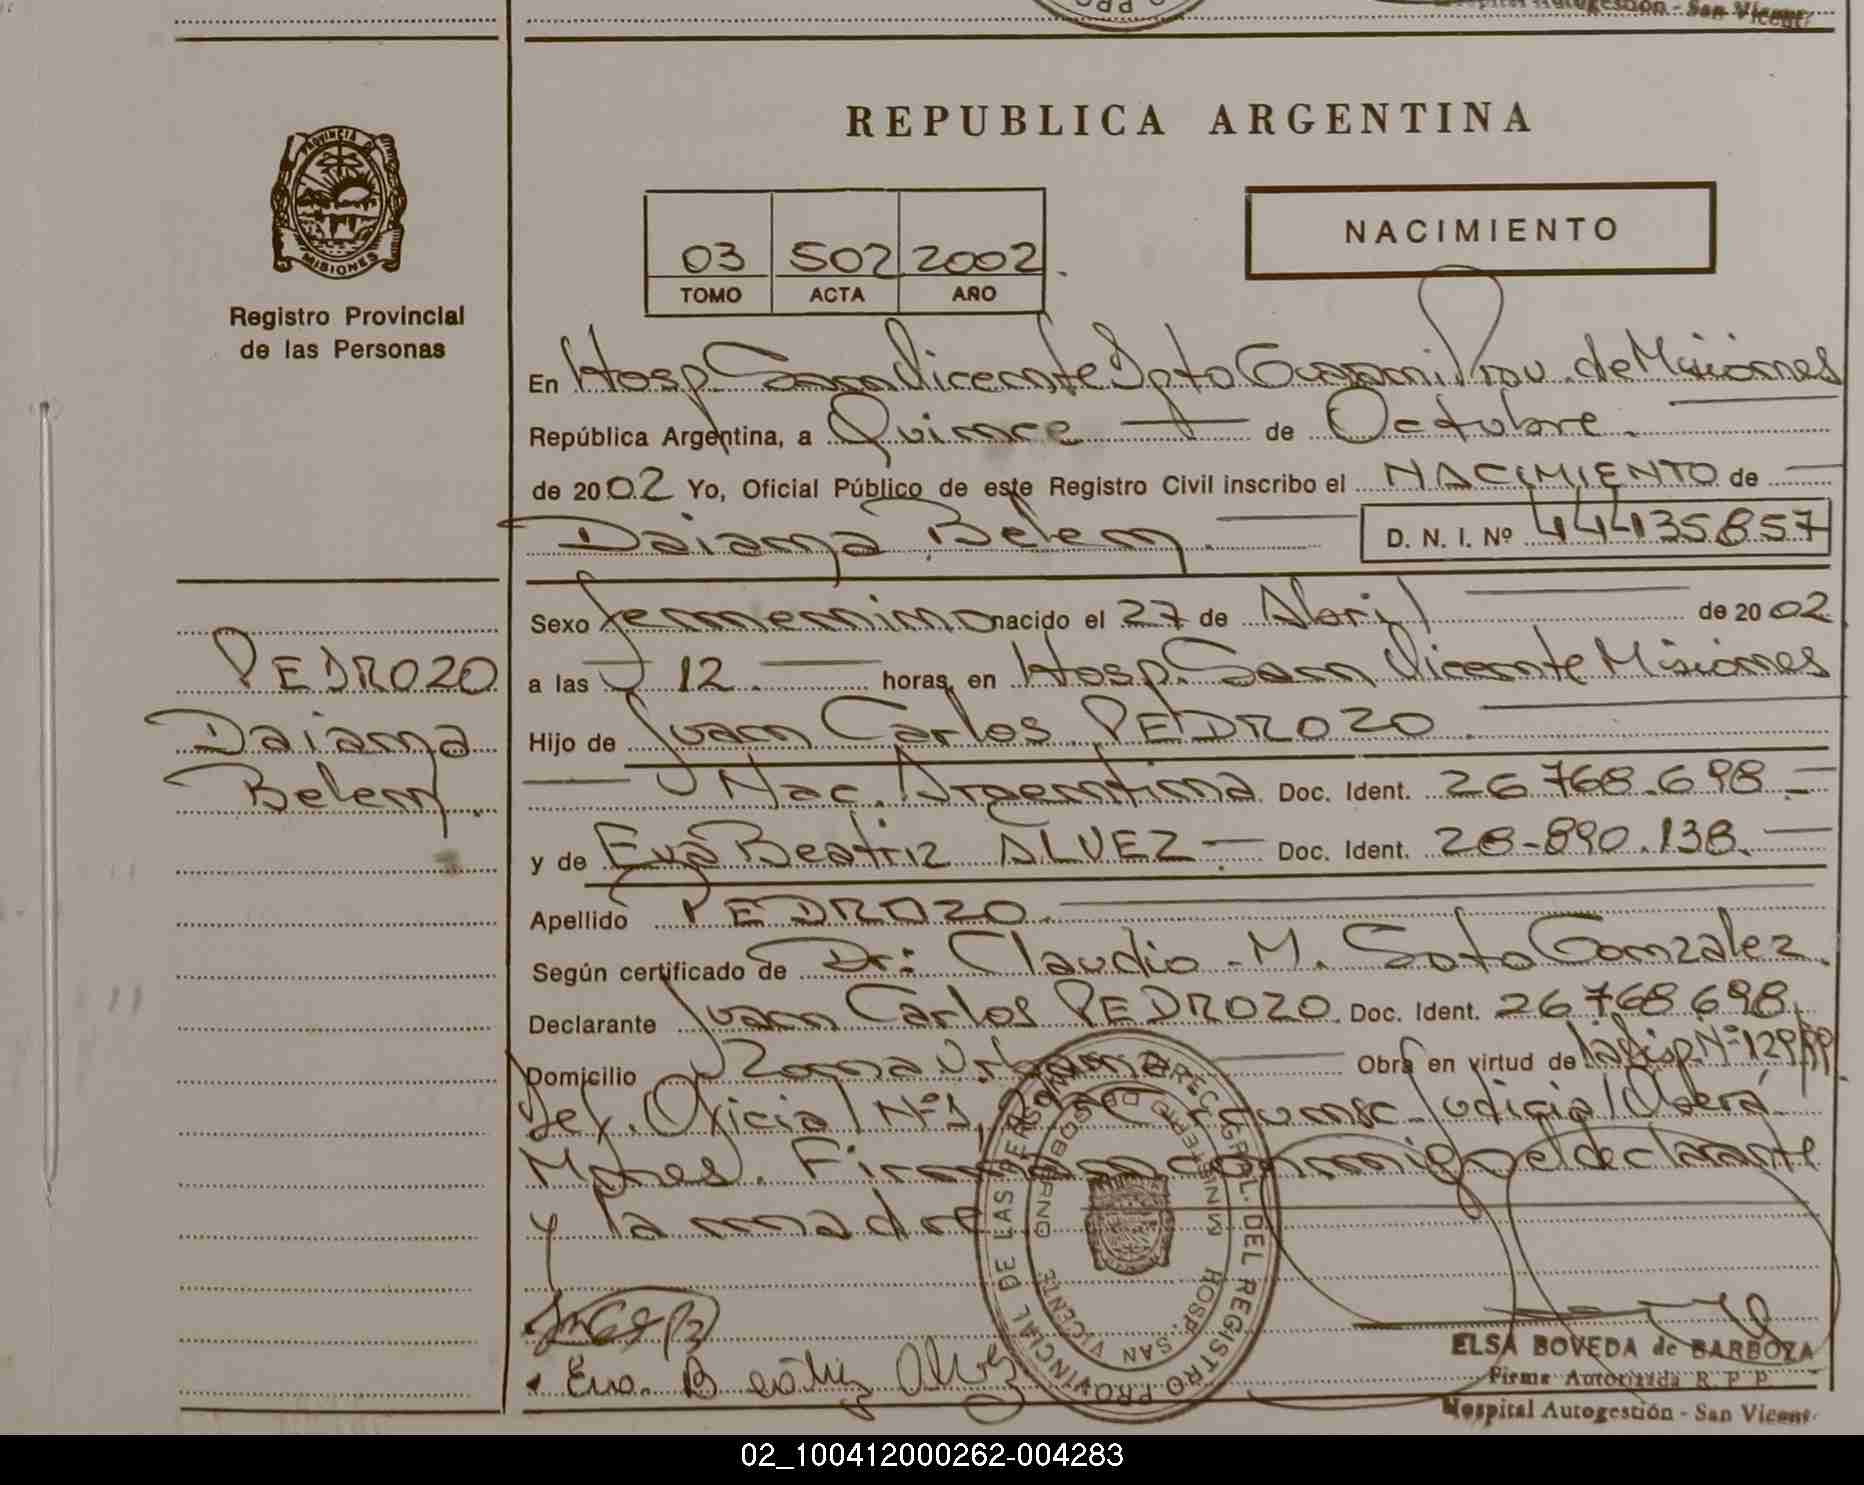 Hospital Autogestión - San Vicent
REPUBLICA ARGENTINA
PROVINCIA DE
MISIONES
Registro Provincial
de las Personas
03 502 2002.
TOMO ACTA AÑO
NACIMIENTO
En Hosp San Vicente Dpto Guarani Prov. de Misiones
República Argentina, a Quince de Octubre.
de 2002 Yo, Oficial Público de este Registro Civil inscribo el NACIMIENTO de
Daiana Belen. D. N. I. Nº 44435857
Sexo femenino nacido el 27 de Abril de 2002
a las 12. horas, en Hosp. San Vicente Misiones
Hijo de Juan Carlos PEDROZO.
Nac. Argentina Doc. Ident. 26768.698
y de Eva Beatriz ALVEZ Doc. Ident. 28-890.138.
Apellido PEDROZO.
Según certificado de Dr: Claudio M. Soto Gonzalez.
Declarante Juan Carlos PEDROZO. Doc. Ident. 26768698.
Domicilio Zona Urbana Obra en virtud de la Disp. Nº 129
Def. Oficial Nº 1, Judicial Oberá
Mnes. Firman conmigo el declarante
y la madre
PEDROZO
Daiana
Belen.
DIREC. GRAL. DEL REGISTRO PROVINCIAL DE LAS PERSONAS
MINISTERIO DE GOBIERNO
HOSP. SAN VICENTE
Eva. Beatriz Alvez
ELSA BOVEDA de BARBOZA
Firma Autorizada R. P. P.
Hospital Autogestión - San Vicent
02_100412000262-004283